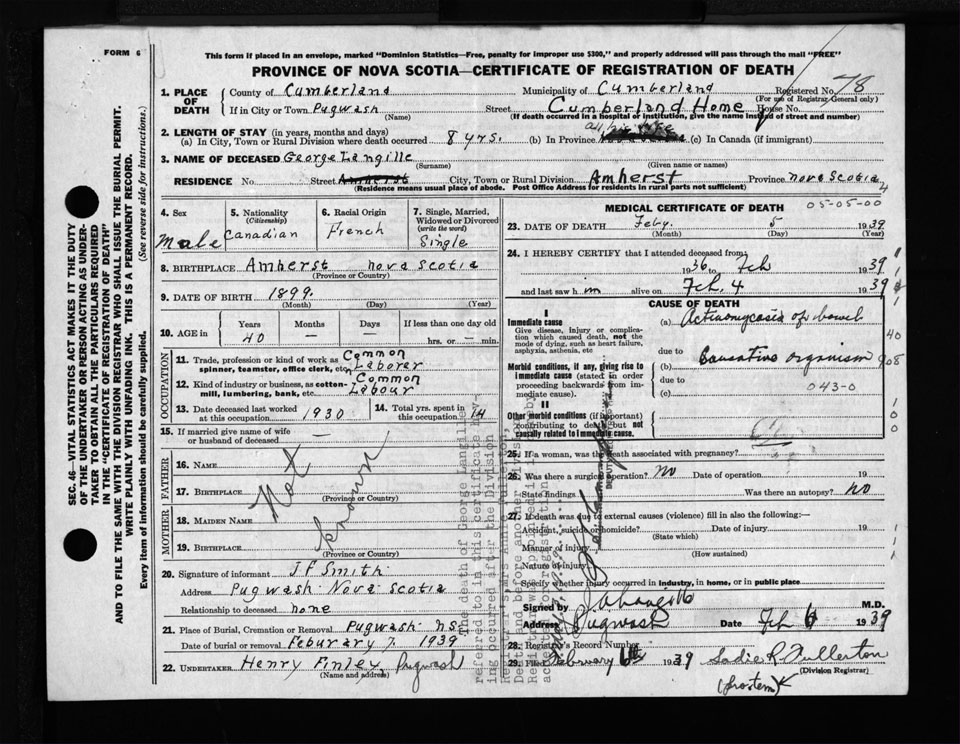 FORM 6
This form if placed in an envelope, marked "Dominion Statistics—Free, penalty for improper use $300," and properly addressed will pass through the mail "FREE"
PROVINCE OF NOVA SCOTIA—CERTIFICATE OF REGISTRATION OF DEATH
78
1. PLACE OF DEATH
County of Cumberland
Municipality of Cumberland
Registered No.
(For use of Registrar General only)
If in City or Town Pugwash
(Name)
Street Cumberland Home House No.
(If death occurred in a hospital or institution, give the name instead of street and number)
2. LENGTH OF STAY (in years, months and days)
(a) In City, Town or Rural Division where death occurred 8 yrs. (b) In Province all his life (c) In Canada (if immigrant)
3. NAME OF DECEASED George Langille
(Surname) (Given name or names)
RESIDENCE No. Street Amherst City, Town or Rural Division Amherst Province Nova Scotia
(Residence means usual place of abode. Post Office Address for residents in rural parts not sufficient)
4. Sex
Male
5. Nationality
(Citizenship)
Canadian
6. Racial Origin
French
7. Single, Married, Widowed or Divorced
(write the word)
Single
8. BIRTHPLACE Amherst Nova Scotia
(Province or Country)
9. DATE OF BIRTH 1899.
(Month) (Day) (Year)
10. AGE in
Years Months Days If less than one day old
40 — — hrs. or — min.
OCCUPATION
11. Trade, profession or kind of work as spinner, teamster, office clerk, etc. Common Laborer
12. Kind of industry or business, as cotton-mill, lumbering, bank, etc. Common Labour
13. Date deceased last worked at this occupation 1930
14. Total yrs. spent in this occupation 14
15. If married give name of wife or husband of deceased —
FATHER
16. NAME
17. BIRTHPLACE
(Province or Country)
MOTHER
18. MAIDEN NAME
19. BIRTHPLACE
(Province or Country)
Not known
20. Signature of informant J F Smith
Address Pugwash Nova Scotia
Relationship to deceased none
21. Place of Burial, Cremation or Removal Pugwash NS
Date of burial or removal Feburary 7. 1939
22. UNDERTAKER Henry Finley, Pugwash
(Name and address)
MEDICAL CERTIFICATE OF DEATH
05-05-00
23. DATE OF DEATH Feby. 5 1939
(Month) (Day) (Year)
24. I HEREBY CERTIFY that I attended deceased from
1936 to Feb 1939
and last saw him alive on Feb. 4 1939
CAUSE OF DEATH
I
Immediate cause
Give disease, injury or complication which caused death, not the mode of dying, such as heart failure, asphyxia, asthenia, etc
(a) Actinomycosis of bowel
due to
Morbid conditions, if any, giving rise to immediate cause (stated in order proceeding backwards from immediate cause).
(b) Causative organism
due to
(c) 043-0
II
Other morbid conditions (if important) contributing to death but not causally related to immediate cause.
25. If a woman, was the death associated with pregnancy?
26. Was there a surgical operation? No Date of operation
State findings Was there an autopsy? no
27. If death was due to external causes (violence) fill in also the following:—
Accident, suicide or homicide? Date of injury 19
(State which)
Manner of injury
(How sustained)
Nature of injury
Specify whether injury occurred in industry, in home, or in public place
Signed by M.D.
Address Pugwash Date Feb 6 1939
28. Registrar's Record Number
29. Filed February 6th 1939 Sadie R. Fullerton
(Division Registrar)
(protem)
SEC. 46—VITAL STATISTICS ACT MAKES IT THE DUTY OF THE UNDERTAKER OR PERSON ACTING AS UNDERTAKER TO OBTAIN ALL THE PARTICULARS REQUIRED IN THE "CERTIFICATE OF REGISTRATION OF DEATH" AND TO FILE THE SAME WITH THE DIVISION REGISTRAR WHO SHALL ISSUE THE BURIAL PERMIT.
WRITE PLAINLY WITH UNFADING INK. THIS IS A PERMANENT RECORD.
Every item of information should be carefully supplied. (See reverse side for instructions.)
The death of George Langille
referred to in this certificate